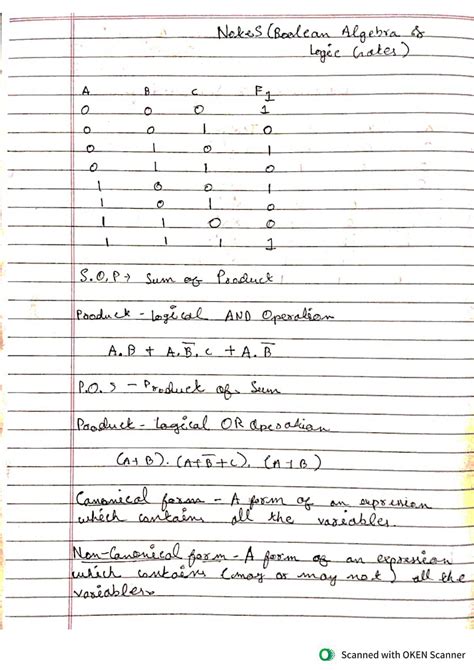 Notes (Boolean Algebra &
Logic Gates)
A B C F1
0 0 0 1
0 0 1 0
0 1 0 1
0 1 1 0
1 0 0 1
1 0 1 0
1 1 0 0
1 1 1 1
S.O.P → Sum of Product
Product - Logical AND Operation
A.B + A.B̅.C + A.B̅
P.O.S - Product of Sum
Product - Logical OR Operation
(A+B). (A+B̅+C). (A+B)
Canonical form - A form of an expression
which contains all the variables.
Non-Canonical form - A form of an expression
which contains (may or may not) all the
variables.
Scanned with OKEN Scanner